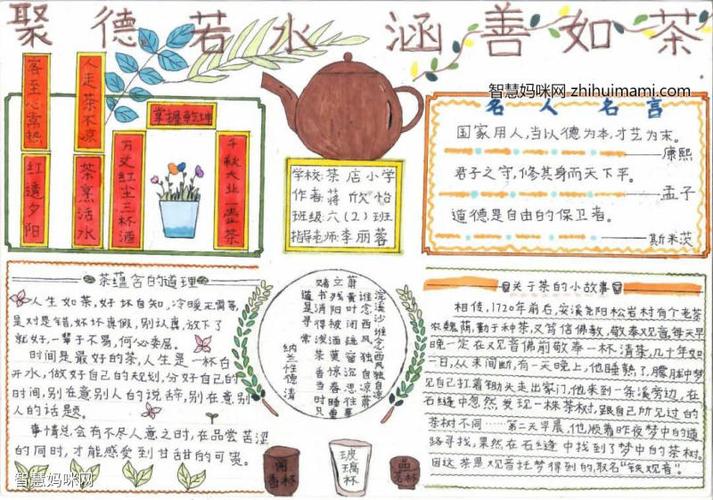 聚德若水 涵善如茶
智慧妈咪网 zhihuimami.com
客至心常热
人走茶不凉
掌握乾坤
红透夕阳
茶烹活水
万丈红尘三杯酒
千秋大业一壶茶
学校:茶店小学
作者:蒋欣怡
班级:六(2)班
指导老师:李丽蓉
名人名言
国家用人,当以德为本,才艺为末。
——康熙
君子之守,修其身而天下平。
——孟子
道德是自由的保卫者。
——斯米茨
茶蕴含的道理
人生如茶,好坏自知,冷暖无需等,
是对是错,好坏真假,别认真,放下了
就好,一辈子不易,何必委屈。
时间是最好的茶,人生是一杯白
开水,做好自己的规划,分好自己的
时间,别在意别人的说辞,别在意别
人的话题。
事情总会有不尽人意之时,在品尝苦涩
的同时,才能感受到甘甜的可贵。
浣溪沙谁念西风独自凉
谁念西风独自凉
萧萧黄叶闭疏窗沉思往事
立残阳被酒莫惊春睡重
赌书消得泼茶香当时只
道是寻常
纳兰性德清
闻香杯
玻璃杯
品茗杯
关于茶的小故事
相传,1720年前后,安溪尧阳松岩村有个老茶
农魏荫,勤于种茶,又笃信佛教,敬奉观音。每天早
晚一定在观音佛前敬奉一杯清茶,几十年如
一日,从未间断,有一天晚上,他睡熟了,朦胧中梦
见自己扛着锄头走出家门,他来到一条溪旁边,在
石缝中忽然发现一株茶树,跟自己所见过的
茶树不同……第二天早晨,他顺着昨夜梦中的道
路寻找,果然在石缝中找到了梦中的茶树。
因这茶是观音托梦得到的,取名“铁观音”。
智慧妈咪网